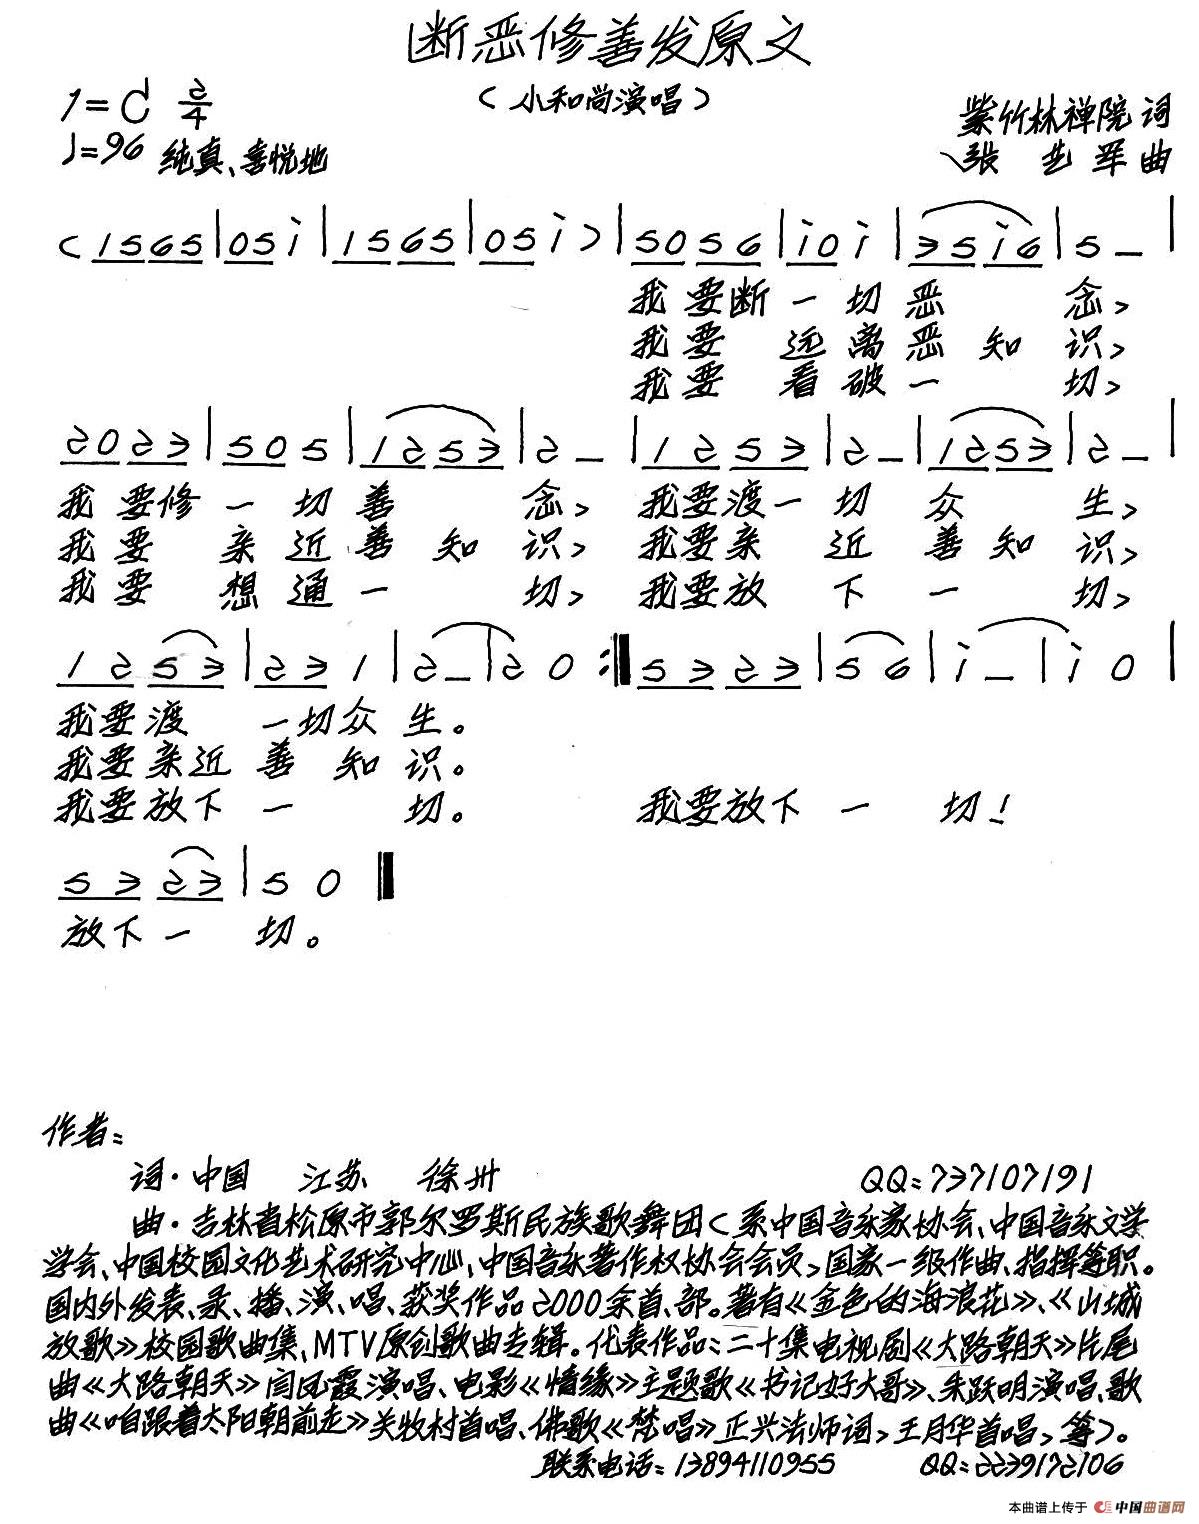 断恶修善发原文
1=C 2/4
(小和尚演唱)
紫竹林禅院 词
♩=96 纯真、喜悦地
张艺军 曲
(1565|05i|1565|05i)|5056|i0i|35i6|5–|
我要断一切恶念,
我要远离恶知识,
我要看破一切,
2023|505|1253|2–|1253|2–|1253|2–|
我要修一切善念, 我要渡一切众生,
我要亲近善知识, 我要亲近善知识,
我要想通一切, 我要放下一切,
1253|231|2–|20:‖5323|56|i–|i0|
我要渡一切众生。
我要亲近善知识。
我要放下一切。 我要放下一切!
5323|50‖
放下一切。
作者:
词·中国 江苏 徐州 QQ:737107191
曲·吉林省松原市郭尔罗斯民族歌舞团(系中国音乐家协会、中国音乐文学
学会、中国校园文化艺术研究中心、中国音乐著作权协会会员,国家一级作曲、指挥等职。
国内外发表、录、播、演、唱、获奖作品2000余首、部。著有《金色的海浪花》、《山城
放歌》校园歌曲集、MTV原创歌曲专辑。代表作品:二十集电视剧《大路朝天》片尾
曲《大路朝天》闫凤霞演唱、电影《情缘》主题歌《书记好大哥》、朱跃明演唱、歌
曲《咱跟着太阳朝前走》关牧村首唱、佛歌《梵唱》正兴法师词,王月华首唱,等)。
联系电话:13894110955 QQ:2239172106
本曲谱上传于 中国曲谱网